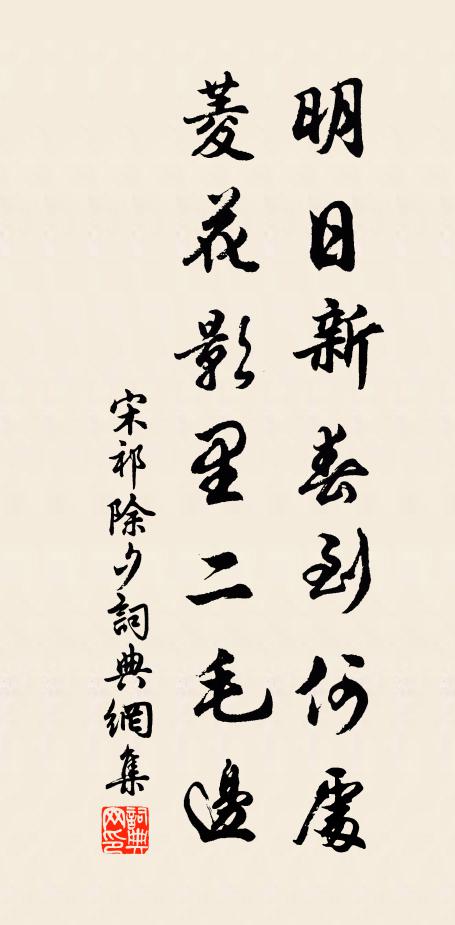 明日新春到何處
菱花影里二毛邊
宋祁除夕詞典網集
詞典網印